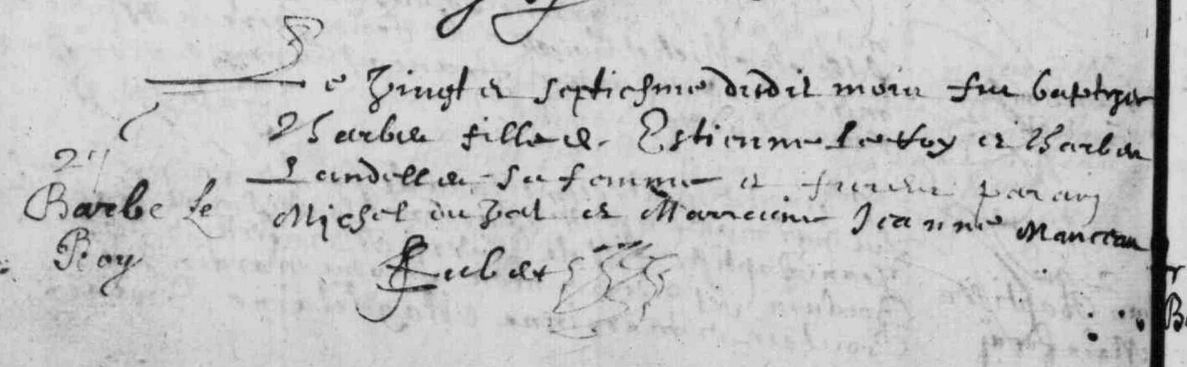 Le Vingt et septiesme dudit mois fut baptisee
Barbe fille de Estienne Le Roy et Barbe
Landelle sa femme et furent parain
Michel du Val et Marraine Jeanne Manceau
27
Barbe Le
Roy